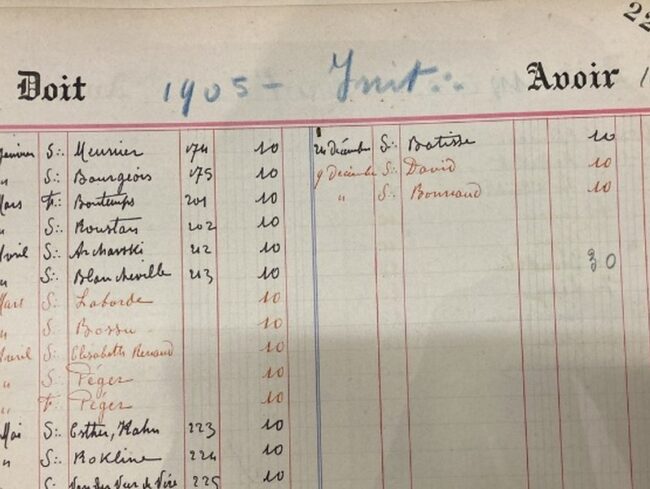 22
Doit 1905 - Init∴ Avoir 1
Janvier S∴ Meunier 174 10
24 Décembre S∴ Batisse 10
" S∴ Bourgeois 175 10
9 Décembre S∴ David 10
Mars F∴ Bontemps 201 10
" S∴ Bonnaud 10
S∴ Roustan 202 10
Avril S∴ Archawski 212 10
" S∴ Blancheville 213 10
30
Mars S∴ Laborde 10
" S∴ Bossu 10
Avril S∴ Elisabeth Renaud 10
" S Péger 10
" F∴ Péger 10
Mai S∴ Esther, Kahn 223 10
" S∴ Rokline 224 10
S∴ 225 10